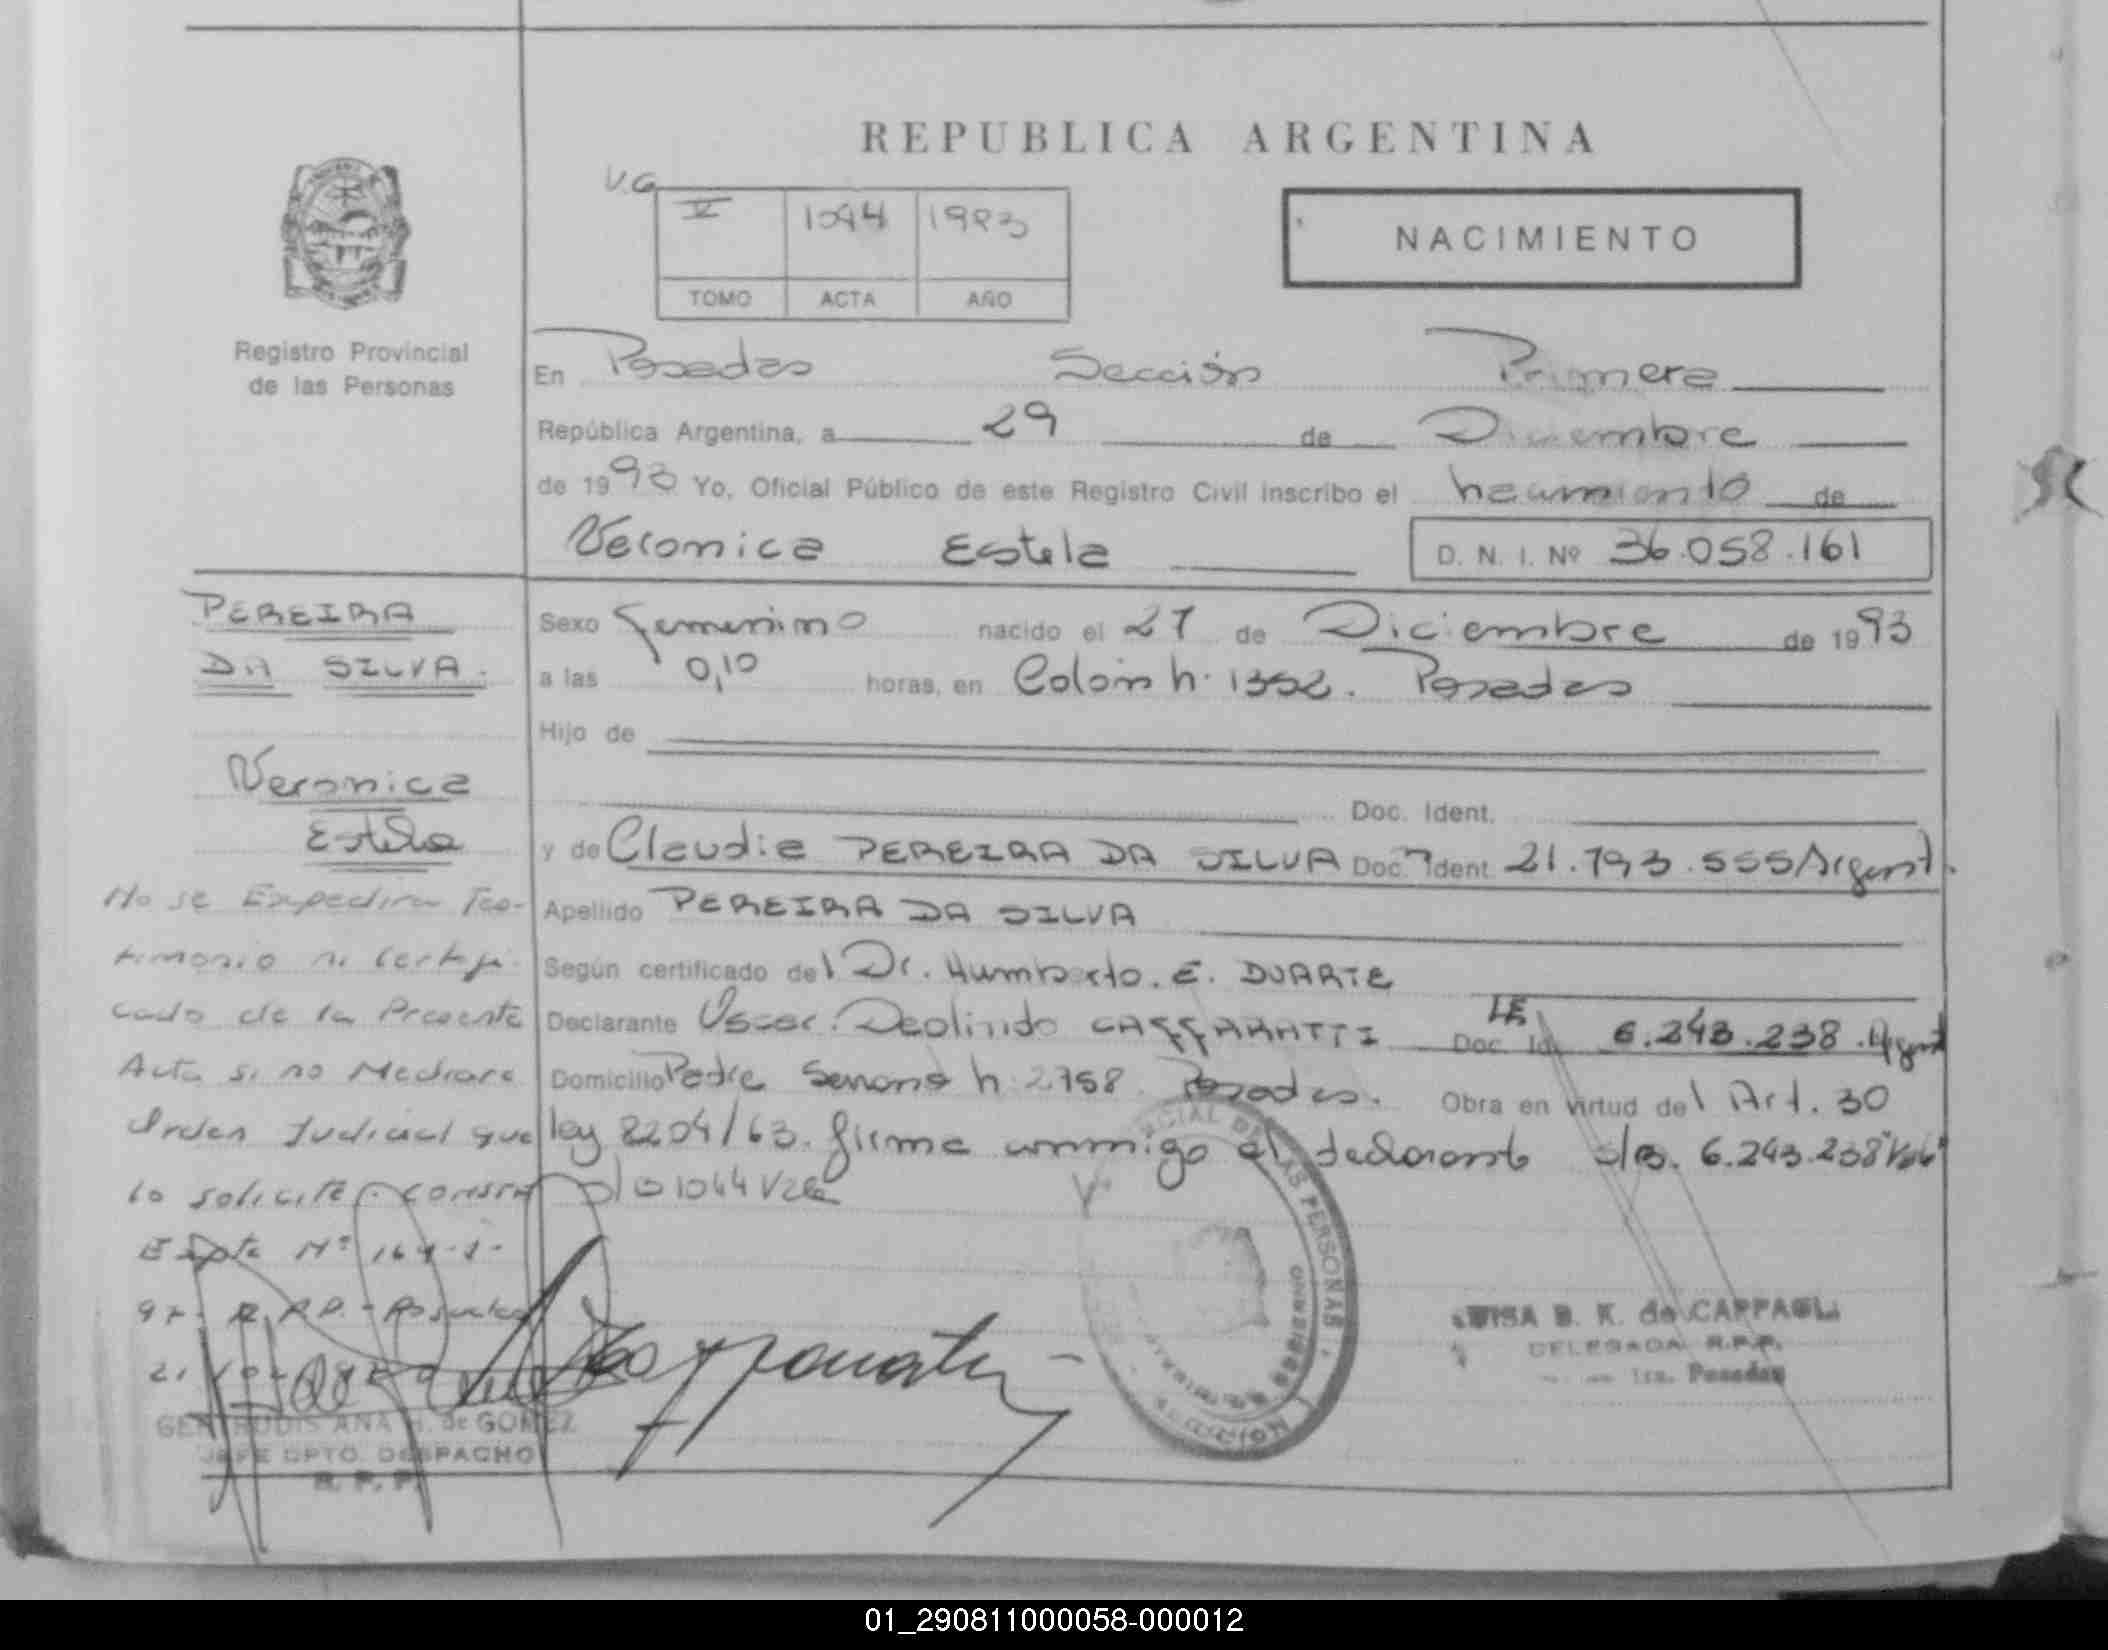 REPUBLICA ARGENTINA
V.G
V 1044 1993
TOMO ACTA AÑO
NACIMIENTO
Registro Provincial
de las Personas
En Posadas Sección Primera
República Argentina, a 29 de Diciembre
de 1993 Yo, Oficial Público de este Registro Civil inscribo el nacimiento de
Veronica Estela D. N. I. Nº 36.058.161
PEREIRA
DA SILVA.
Veronica
Estela
Sexo Femenino nacido el 27 de Diciembre de 1993
a las 0,10 horas, en Colón n. 1352. Posadas
Hijo de
Doc. Ident.
y de Claudia PEREIRA DA SILVA Doc. Ident. 21.793.555 Argent.
Apellido PEREIRA DA SILVA
Según certificado del Dr. Humberto. E. DUARTE
Declarante Oscar. Deolindo CAFFARATTI Doc. Id. LE 6.243.238. Argent
Domicilio Padre Serrano n. 2758 Posadas. Obra en virtud del Art. 30
ley 8204/63. firma conmigo el declarante s/b. 6.243.238 "Vale"
1044 Vale
No se Expedira Tes-
timonio ni Certifi-
cado de la Presente
Acta si no Mediare
Orden Judicial que
lo solicite. Consta
Expte Nº
97- R.P.P.- Posadas
GERTRUDIS ANA H. de GOMEZ
JEFE DPTO. DESPACHO
R. P. P.
DE LAS PERSONAS
LUISA B. K. de CAPPAGLI
DELEGADA R.P.P.
1ra. Posadas
01_290811000058-000012